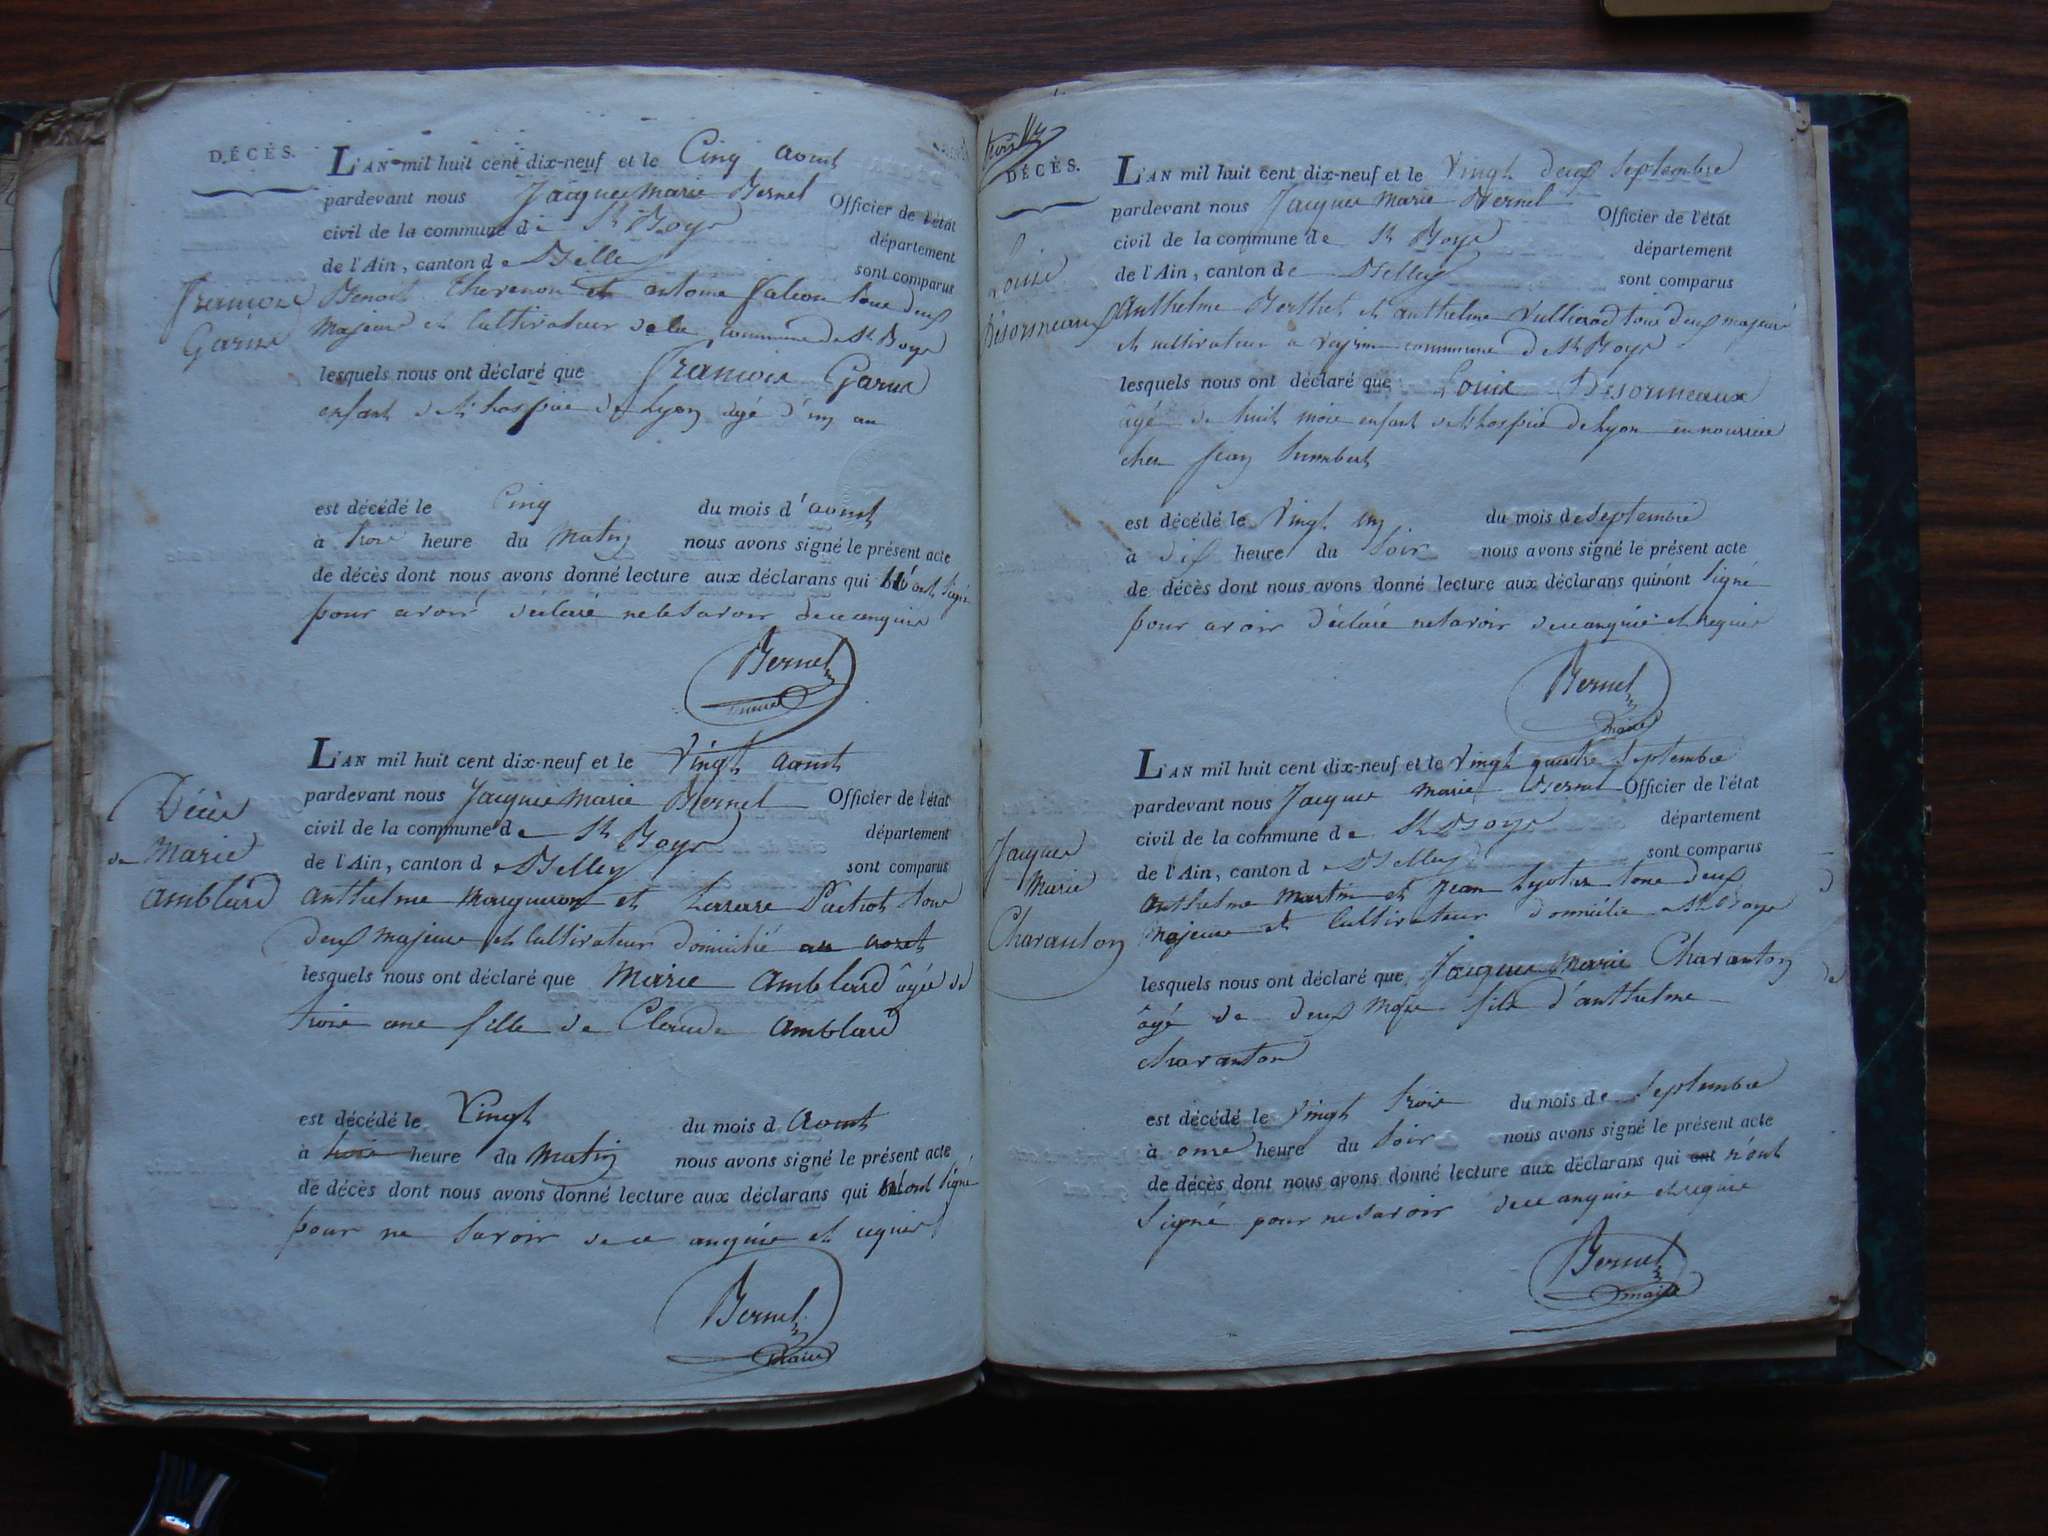 DÉCÈS.
L'AN mil huit cent dix-neuf et le Cinq aoust
pardevant nous Jacque Marie Bernel Officier de l'état
civil de la commune de St Boys département
de l'Ain, canton de Belley sont comparus
François
Garin
Benoit Chevenon et antoine falcon tous deux
majeurs et Cultivateur de la commune de St Boys
lesquels nous ont déclaré que François Garin
enfant de l'hospice de Lyon agé d'un an
est décédé le Cinq du mois d'aoust
à trois heure du Matin nous avons signé le présent acte
de décès dont nous avons donné lecture aux déclarans qui n'ont signé
pour avoir déclaré ne le savoir de ce enquis
Bernel
maire
L'AN mil huit cent dix-neuf et le Vingt aoust
pardevant nous Jacque Marie Bernel Officier de l'état
civil de la commune de St Boys département
de l'Ain, canton de Belley sont comparus
Décès
de Marie
Amblard
anthelme et tous
deux majeurs et Cultivateur Domicilié
lesquels nous ont déclaré que Marie Amblard âgée de
trois ans fille de Claude Amblard
est décédé le Vingt du mois d Aoust
à trois heure du Matin nous avons signé le présent acte
de décès dont nous avons donné lecture aux déclarans qui n'ont signé
pour ne savoir de ce enquis et requis
Bernel
Maire
DÉCÈS.
L'AN mil huit cent dix-neuf et le Vingt deux Septembre
pardevant nous Jacque Marie Bernel Officier de l'état
civil de la commune de St Boys département
de l'Ain, canton de Belley sont comparus
Louise
Désormeaux
Anthelme Berthet et anthelme Vullierod tous deux majeurs
et cultivateur a commune de St Boys
lesquels nous ont déclaré que Louise Désormeaux
âgé de huit mois enfant de l'hospice de Lyon en nourrice
chez Jean humbert
est décédé le Vingt un du mois de Septembre
à dix heure du Soir nous avons signé le présent acte
de décès dont nous avons donné lecture aux déclarans qui n'ont Signé
pour avoir Déclaré ne savoir de ce enquis et requis
Bernel
Maire
L'AN mil huit cent dix-neuf et le Vingt quatre Septembre
pardevant nous Jacque marie Bernel Officier de l'état
civil de la commune de St Boys département
de l'Ain, canton de Belley sont comparus
Jacque
Marie
Charanton
Anthelme Martin et Jean tous deux
Majeurs et Cultivateur domicilié a St Boys
lesquels nous ont déclaré que Jacque Marie Charanton
âgé de deux Mois fils d'anthelme
charanton
est décédé le Vingt trois du mois de Septembre
à onze heure du Soir nous avons signé le présent acte
de décès dont nous avons donné lecture aux déclarans qui ont n'ont
Signé pour ne savoir de ce enquis et requis
Bernel
maire